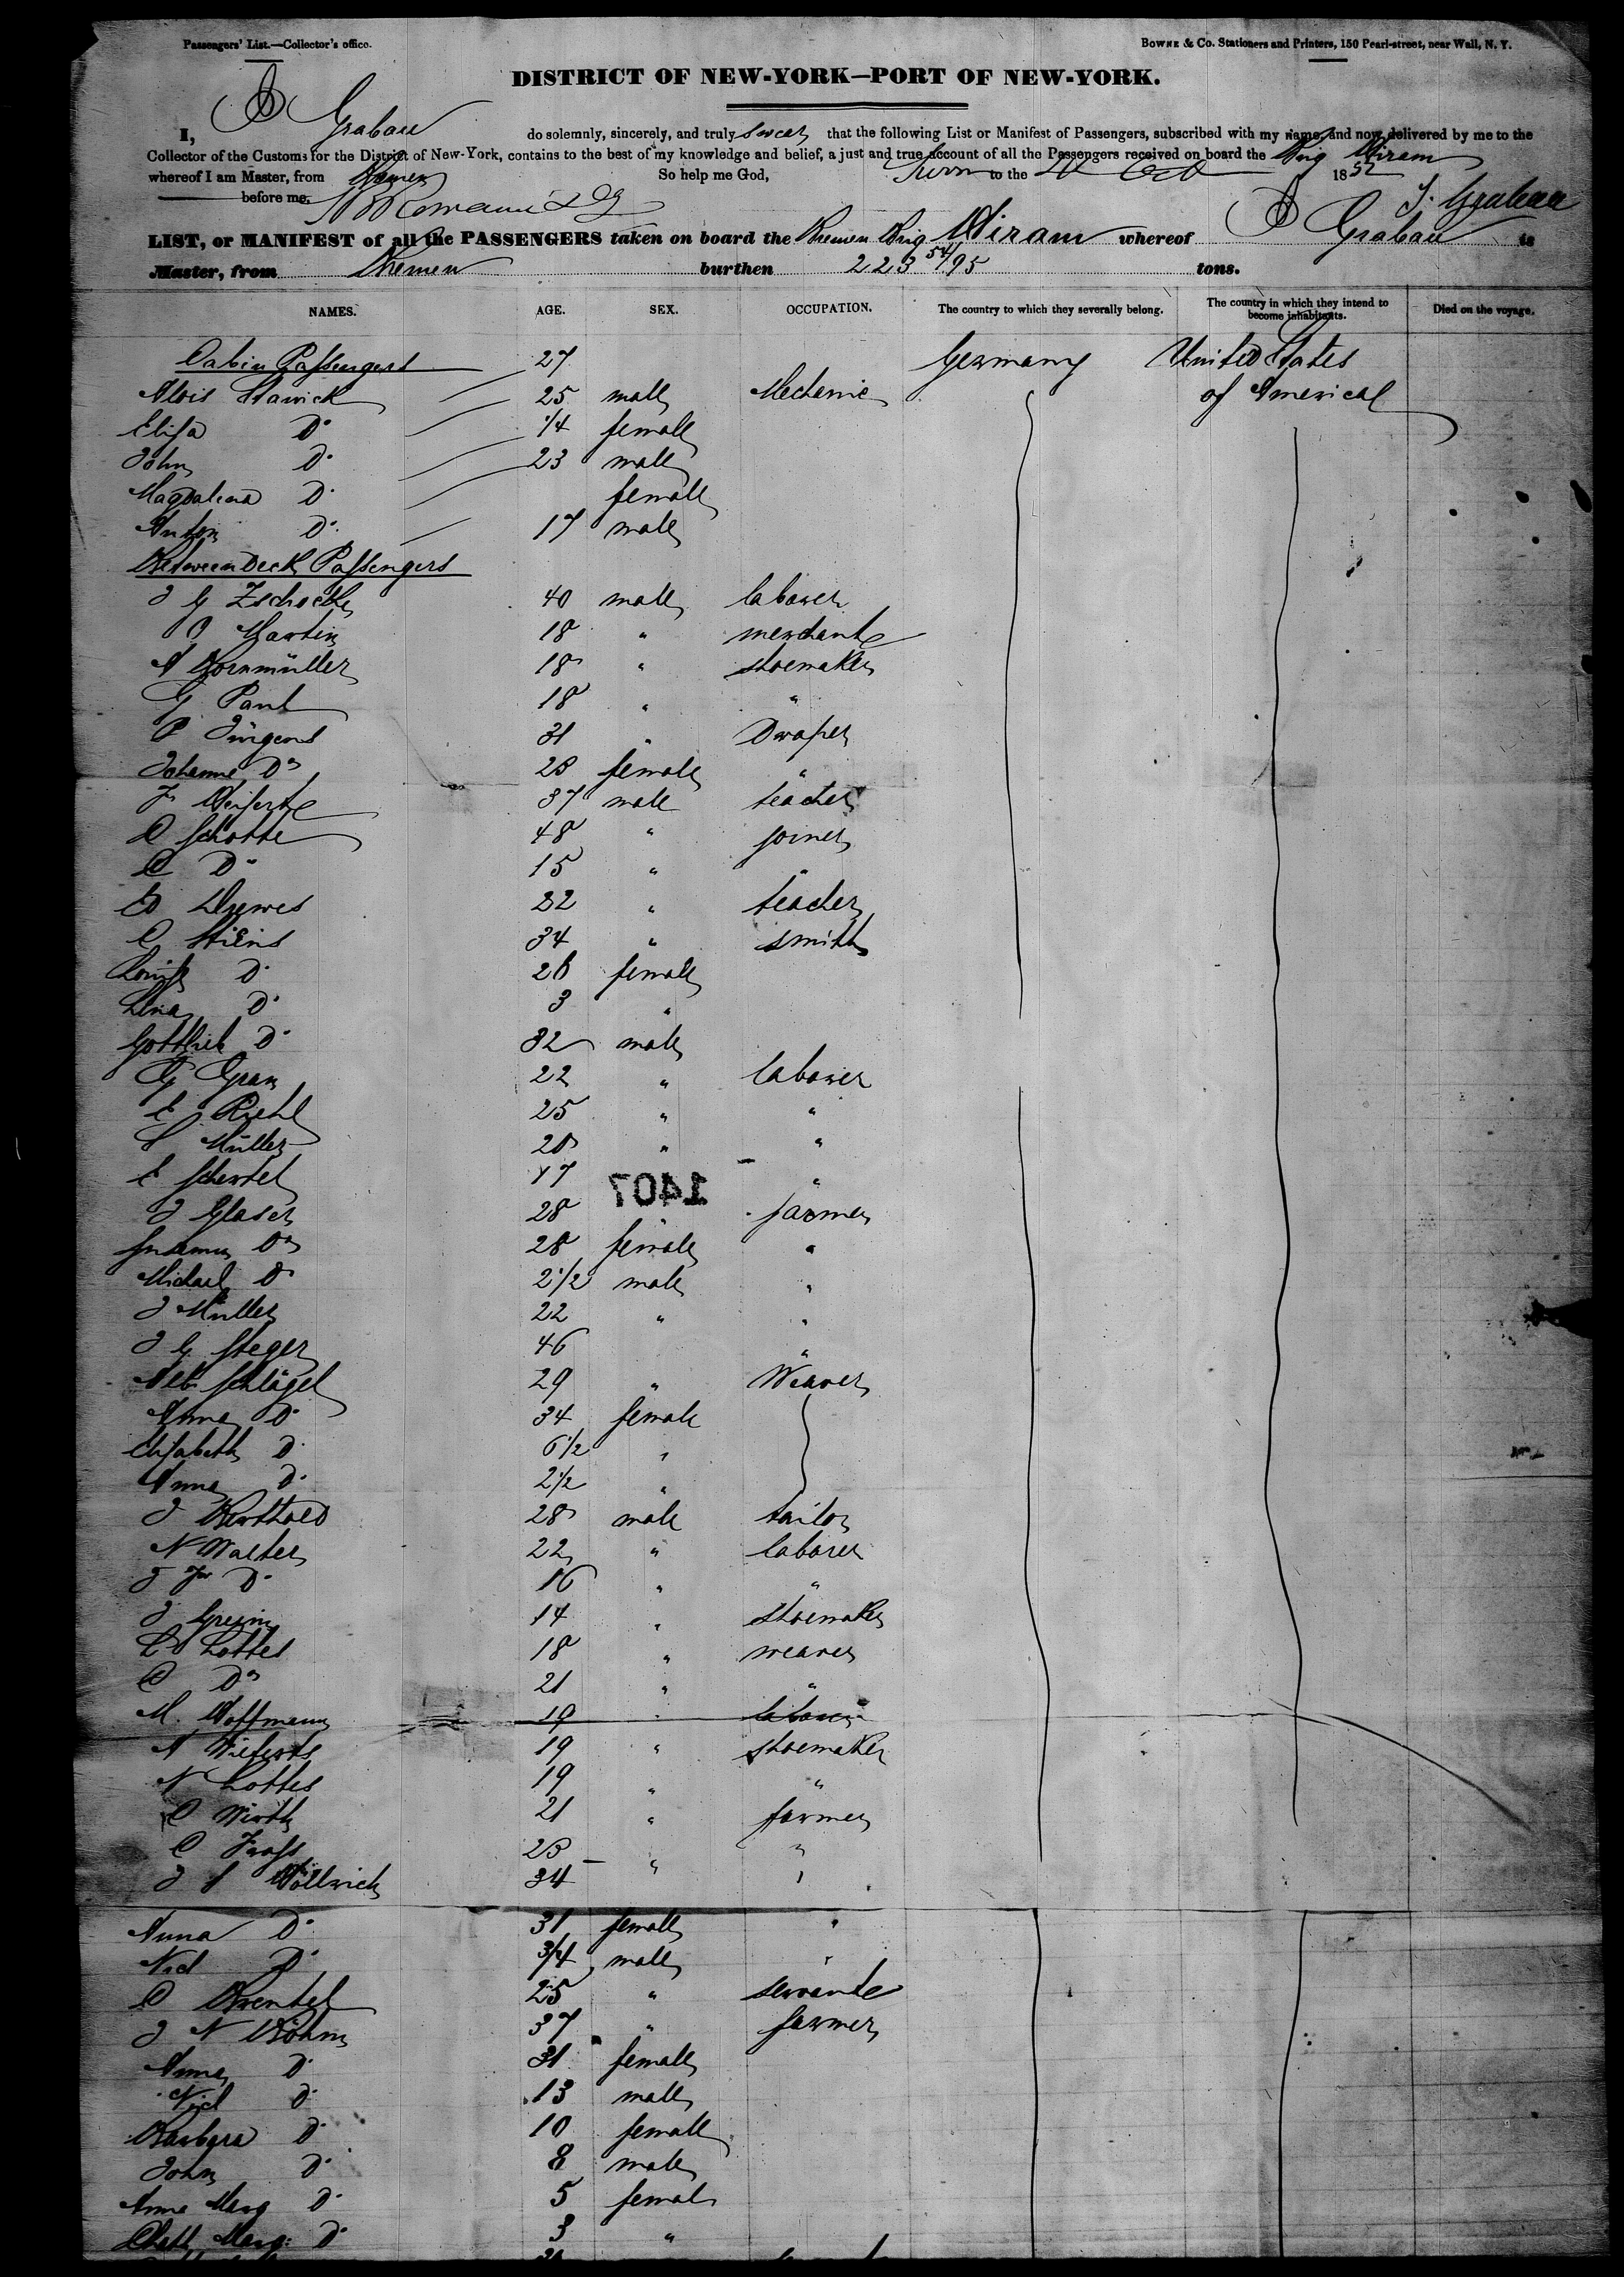 Passengers' List.—Collector's office.
BOWNE & Co. Stationers and Printers, 150 Pearl-street, near Wall, N. Y.
DISTRICT OF NEW-YORK—PORT OF NEW-YORK.
I, Grabau do solemnly, sincerely, and truly swear that the following List or Manifest of Passengers, subscribed with my name, and now delivered by me to the
Collector of the Customs for the District of New-York, contains to the best of my knowledge and belief, a just and true account of all the Passengers received on board the Brig Hiram
whereof I am Master, from Bremen So help me God, Sworn to the Oct 1852
before me. Grabau
LIST, or MANIFEST of all the PASSENGERS taken on board the Bremen Brig Hiram whereof Grabau is
Master, from Bremen burthen 223 54/95 tons.
NAMES. AGE. SEX. OCCUPATION. The country to which they severally belong. The country in which they intend to become inhabitants. Died on the voyage.
Cabin Passengers 27 Germany United States
Alois Stawick 25 male Mechanic of America
Elisa Do 1/4 female
John Do 23 male
Magdalena Do female
Anton Do 17 male
Between Deck Passengers
J G Zschoche 40 male labourer
C Martin 18 " merchant
A Hornmüller 18 " shoemaker
G Paul 18 " "
P Jürgens 31 " Draper
Johanne Do 28 female "
Fr 37 male teacher
C Schotte 48 " joiner
C Do 15 " "
Drewes 22 " teacher
C Stiens 34 " smith
Louise Do 26 female
Lina Do 3 "
Gottlieb Do 32 male
G Gran 22 " labourer
E Riehl 25 " "
Müller 20 " "
E Schertel 17 "
J Glaser 28 " farmer
Susanna Do 28 female "
Michael Do 2 1/2 male "
J Müller 22 " "
J G Steger 46 "
Schlögel 29 " Weaver
Anna Do 34 female
Elisabeth Do 6 1/2 "
Anna Do 2 1/2 "
J Berthold 28 male tailor
N Walter 22 " laborer
J Fr Do 16 " "
J 14 " shoemaker
Lottes 18 " weaver
C Do 21 " "
M. Hoffmann 19 " labourer
A 19 " shoemaker
N Lottes 19 " "
C Wirth 21 " farmer
C 23 " "
J Wöllrich 34 "
1407
Anna Do 31 female "
Nicl Do 3/4 male "
C 25 " servante
J N Böhm 37 " farmer
Anna Do 31 female
Nicl Do 13 male
Barbara Do 10 female
John Do 8 male
Anna Marg Do 5 female
Marg: Do 3 "